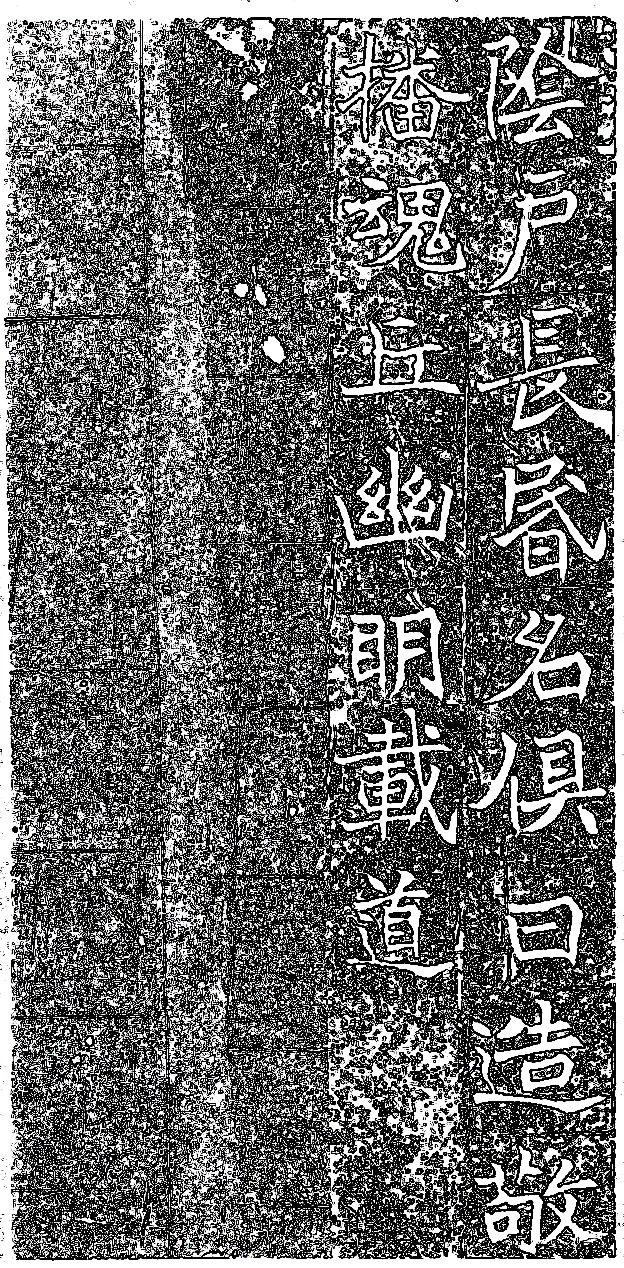 陰戶長昏名俱日造敬
播魂丘幽明載道